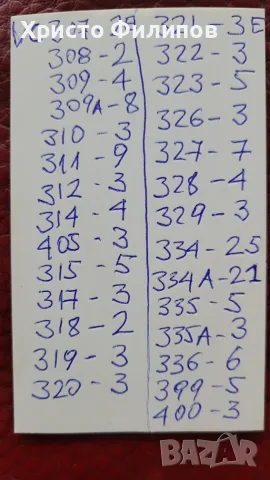 Христо Филипов
308-2
309-4
309A-8
310-3
311-9
312-3
314-4
405-3
315-5
317-3
318-2
319-3
320-3
321-3E
322-3
323-5
326-3
327-7
328-4
329-3
334-25
334A-21
335-5
335A-3
336-6
399-5
400-3
bazar
БГ